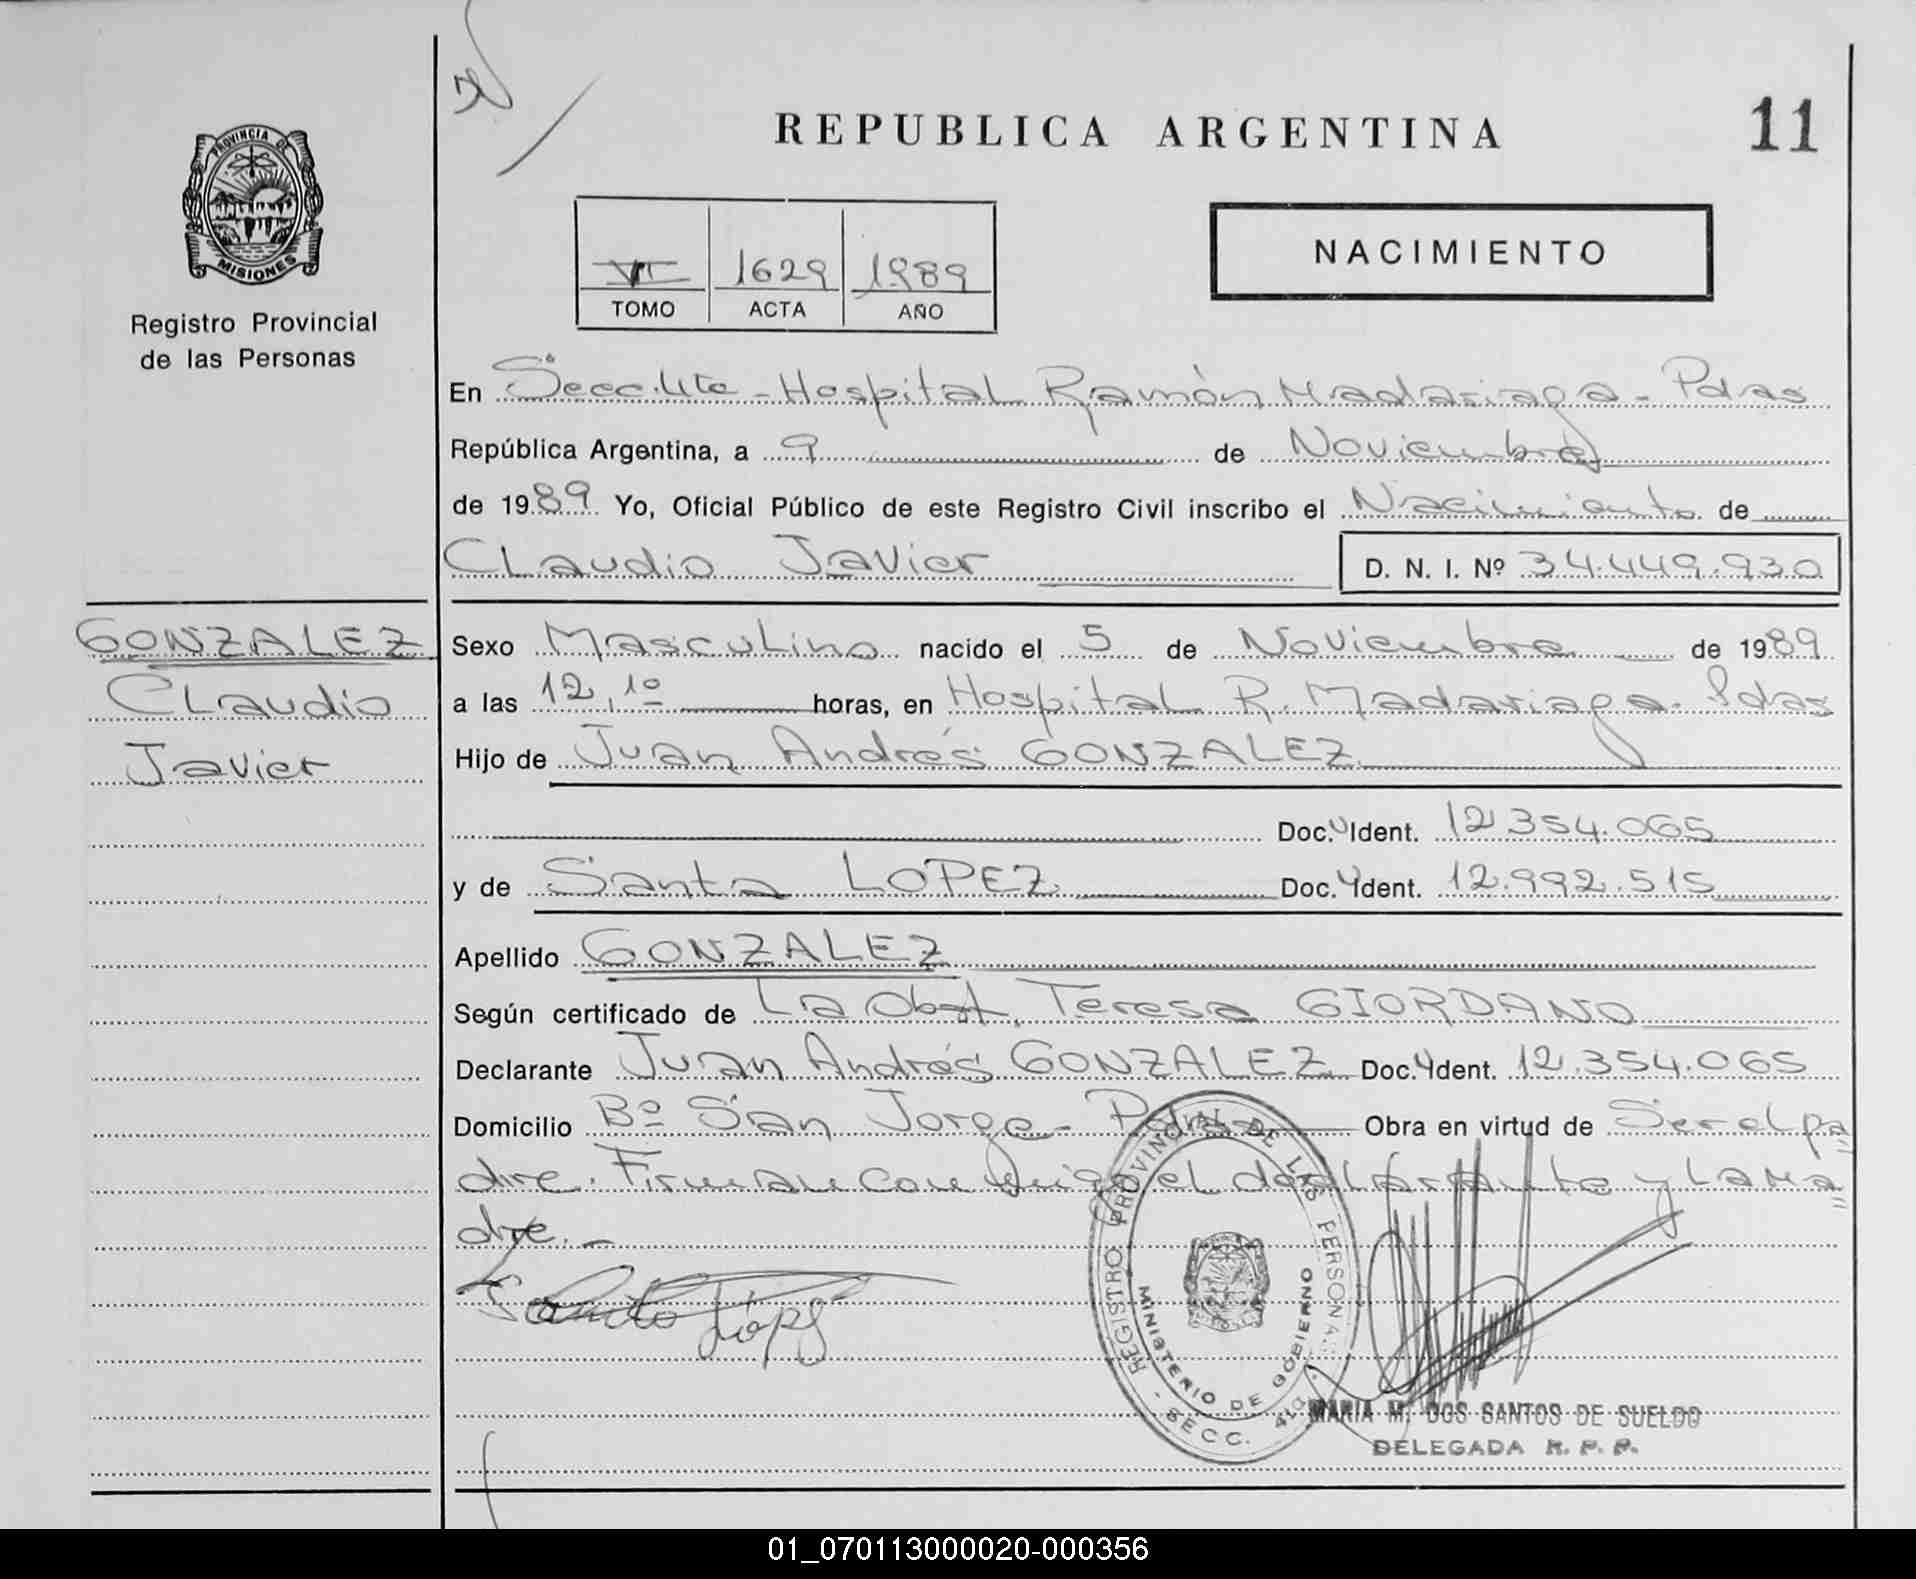 REPUBLICA ARGENTINA
11
PROVINCIA DE
MISIONES
Registro Provincial
de las Personas
VI 1629 1989
TOMO ACTA AÑO
NACIMIENTO
En Secc. 4ta - Hospital Ramón Madariaga - Pdas
República Argentina, a 9 de Noviembre
de 1989 Yo, Oficial Público de este Registro Civil inscribo el Nacimiento de
Claudio Javier D. N. I. Nº 34.449.930
GONZALEZ
Claudio
Javier
Sexo Masculino nacido el 5 de Noviembre de 1989
a las 12,10 horas, en Hospital R. Madariaga - Pdas
Hijo de Juan Andrés GONZALEZ
Doc. Ident. 12.354.065
y de Santa LOPEZ Doc. Ident. 12.992.515
Apellido GONZALEZ
Según certificado de La Obst. Teresa GIORDANO
Declarante Juan Andrés GONZALEZ Doc. Ident. 12.354.065
Domicilio Bº San Jorge - Pdas Obra en virtud de Ser el pa
dre. Firman conmigo el declarante y la ma
dre. -
Santa López
REGISTRO PROVINCIAL DE LAS PERSONAS
MINISTERIO DE GOBIERNO
SECC. 4ta
MARIA M. DOS SANTOS DE SUELDO
DELEGADA R. P. P.
01_070113000020-000356